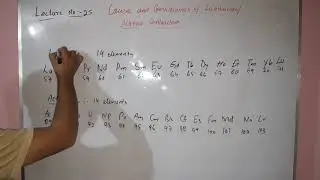 Lecture No-25
Cause and Consequences of Lanthanoid/
Actinoid Contraction
14 elements
La Pr Nd Pm Sm Eu Gd Tb Dy Ho Er Tm Yb Lu
57 59 60 61 62 63 64 65 66 67 68 69 70 71
14 elements
U Np Pu Am Cm Bk Cf Es Fm Md No Lr
92 93 94 95 96 97 98 99 100 101 102 103